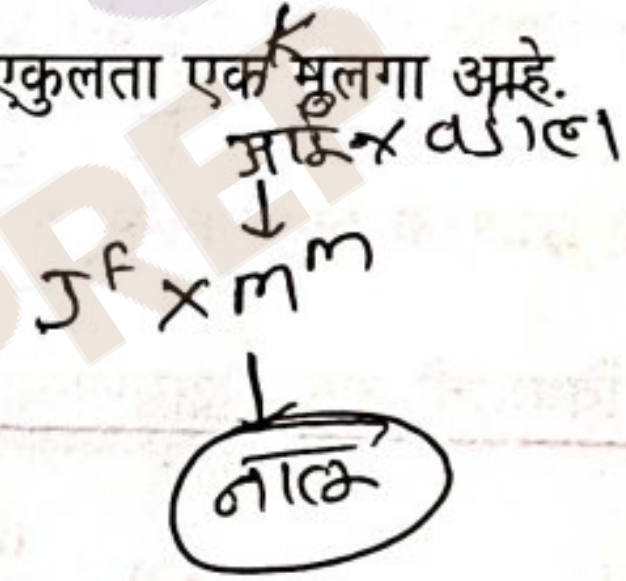 एकुलता एक मुलगा आहे.
आई × वडील
J^F × m^m